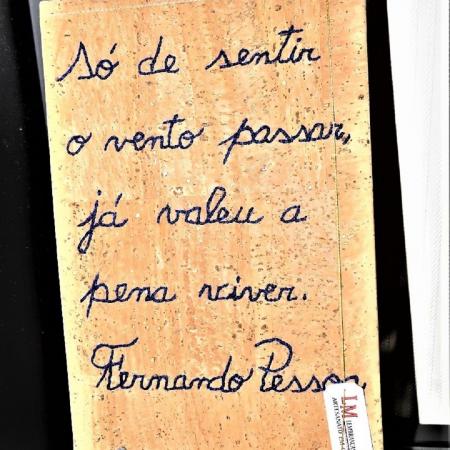 Só de sentir
o vento passar,
já valeu a
pena viver.
Fernando Pessoa
LM